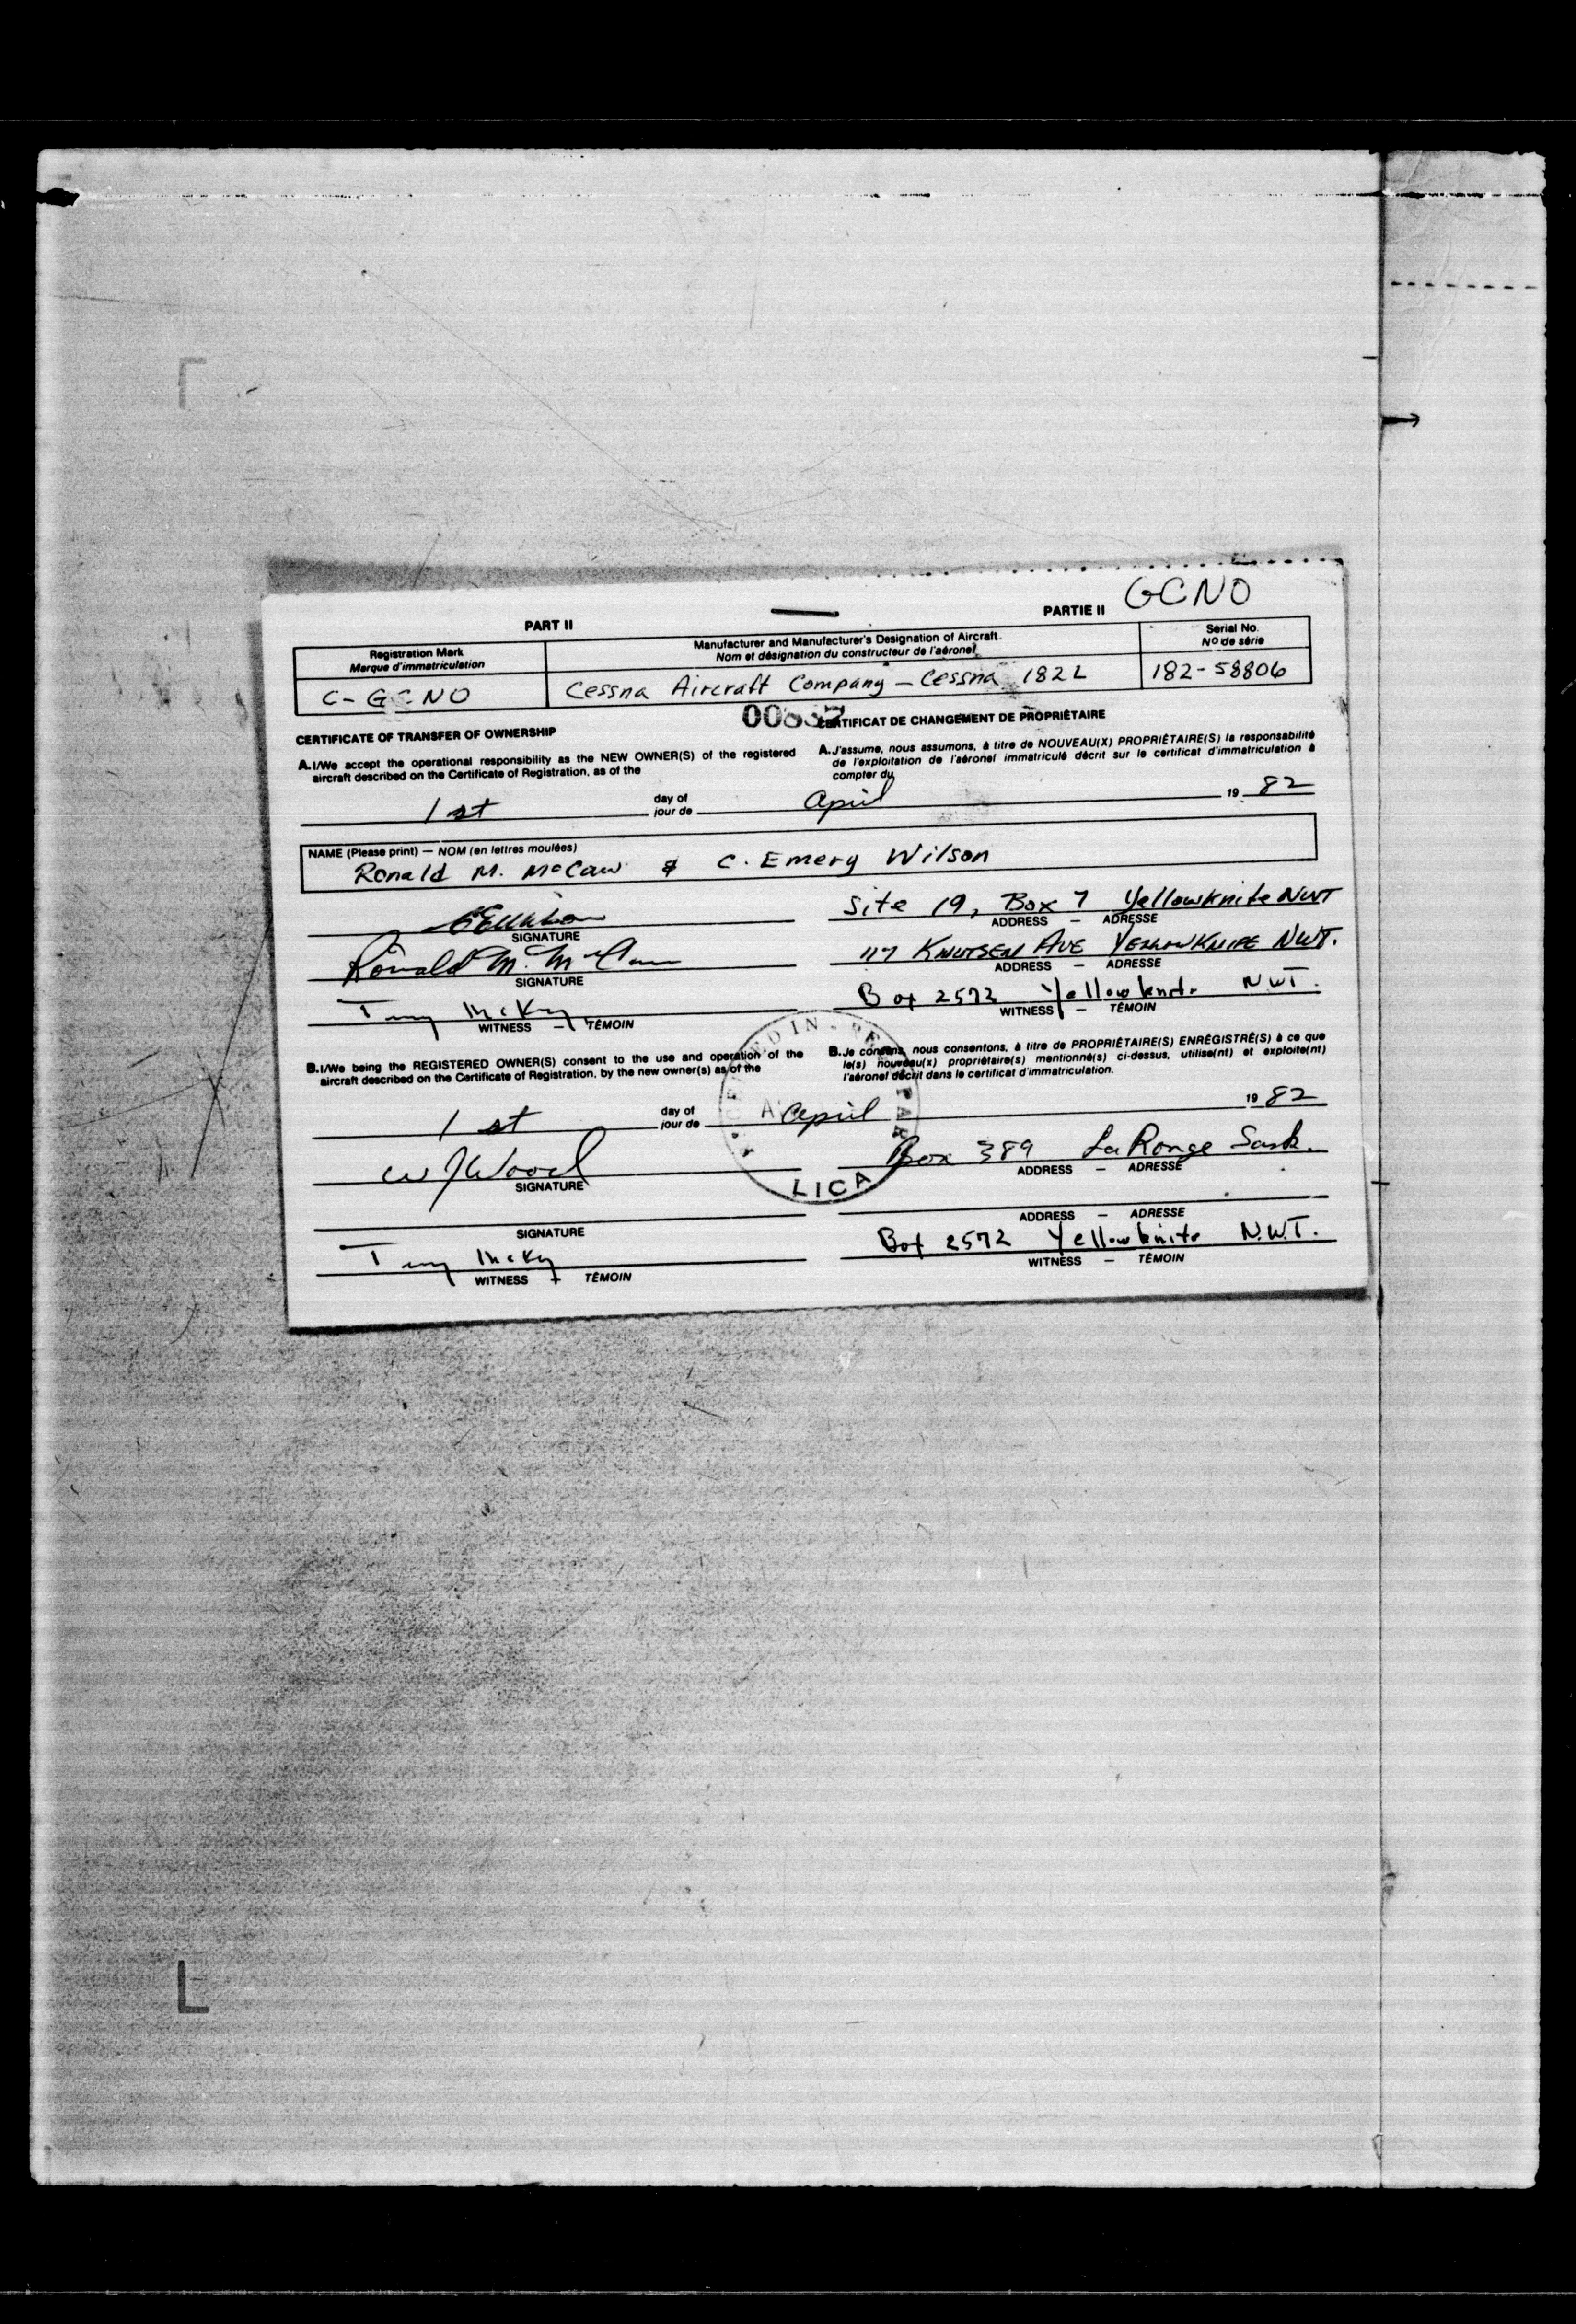 GCNO
PART II PARTIE II
Registration Mark
Marque d'immatriculation
Manufacturer and Manufacturer's Designation of Aircraft
Nom et désignation du constructeur de l'aéronef
Serial No.
No de série
C-GCNO Cessna Aircraft Company - Cessna 182L 182-58806
CERTIFICATE OF TRANSFER OF OWNERSHIP
CERTIFICAT DE CHANGEMENT DE PROPRIÉTAIRE
A. I/We accept the operational responsibility as the NEW OWNER(S) of the registered
aircraft described on the Certificate of Registration, as of the
A. J'assume, nous assumons, à titre de NOUVEAU(X) PROPRIÉTAIRE(S) la responsabilité
de l'exploitation de l'aéronef immatriculé décrit sur le certificat d'immatriculation à
compter du
1st day of April 19 82
jour de
NAME (Please print) — NOM (en lettres moulées)
Ronald M. McCaw & C. Emery Wilson
Site 19, Box 7 Yellowknife NWT
SIGNATURE ADDRESS — ADRESSE
Ronald M. McCaw 117 KNUTSEN AVE YELLOWKNIFE NWT.
SIGNATURE ADDRESS — ADRESSE
Box 2572 Yellowknife NWT.
WITNESS — TÉMOIN WITNESS — TÉMOIN
B. I/We being the REGISTERED OWNER(S) consent to the use and operation of the
aircraft described on the Certificate of Registration, by the new owner(s) as of the
B. Je consens, nous consentons, à titre de PROPRIÉTAIRE(S) ENRÉGISTRÉ(S) à ce que
le(s) nouveau(x) propriétaire(s) mentionné(s) ci-dessus, utilise(nt) et exploite(nt)
l'aéronef décrit dans le certificat d'immatriculation.
1st day of April 19 82
jour de
W J Wood Box 389 La Ronge Sask.
SIGNATURE ADDRESS — ADRESSE
LICA
SIGNATURE ADDRESS — ADRESSE
Box 2572 Yellowknife N.W.T.
WITNESS — TÉMOIN WITNESS — TÉMOIN
L